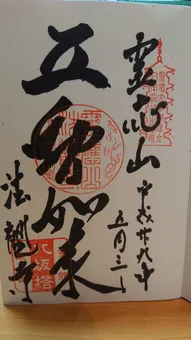 霊応山
平成廿九年
五月三日
五智如来
法観寺
八坂塔